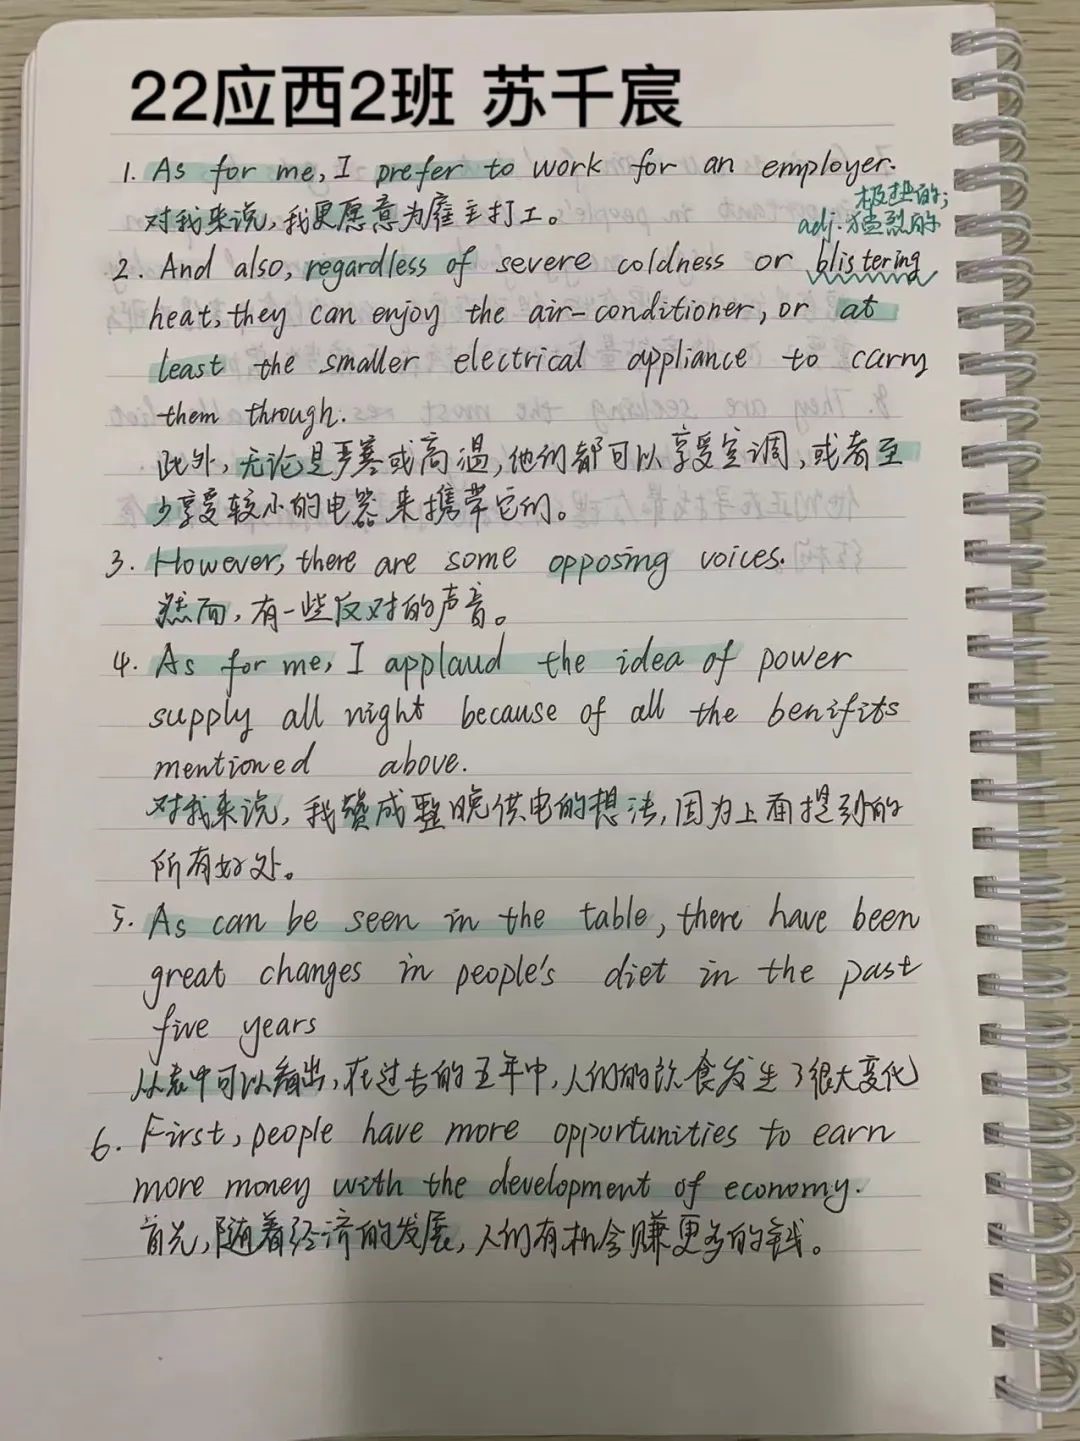 22应西2班 苏千宸
1. As for me, I prefer to work for an employer.
对我来说，我更愿意为雇主打工。
极热的；
adj. 猛烈的
2. And also, regardless of severe coldness or blistering
heat, they can enjoy the air-conditioner, or at
least the smaller electrical appliance to carry
them through.
此外，无论是严寒或高温，他们都可以享受空调，或者至
少享受较小的电器来携带它们。
3. However, there are some opposing voices.
然而，有一些反对的声音。
4. As for me, I applaud the idea of power
supply all night because of all the benifits
mentioned above.
对我来说，我赞成整晚供电的想法，因为上面提到的
所有好处。
5. As can be seen in the table, there have been
great changes in people's diet in the past
five years
从表中可以看出，在过去的五年中，人们的饮食发生了很大变化
6. First, people have more opportunities to earn
more money with the development of economy.
首先，随着经济的发展，人们有机会赚更多的钱。